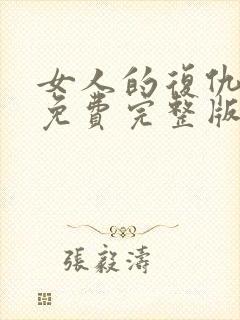 女人的復仇
免費完整版
張毅濤